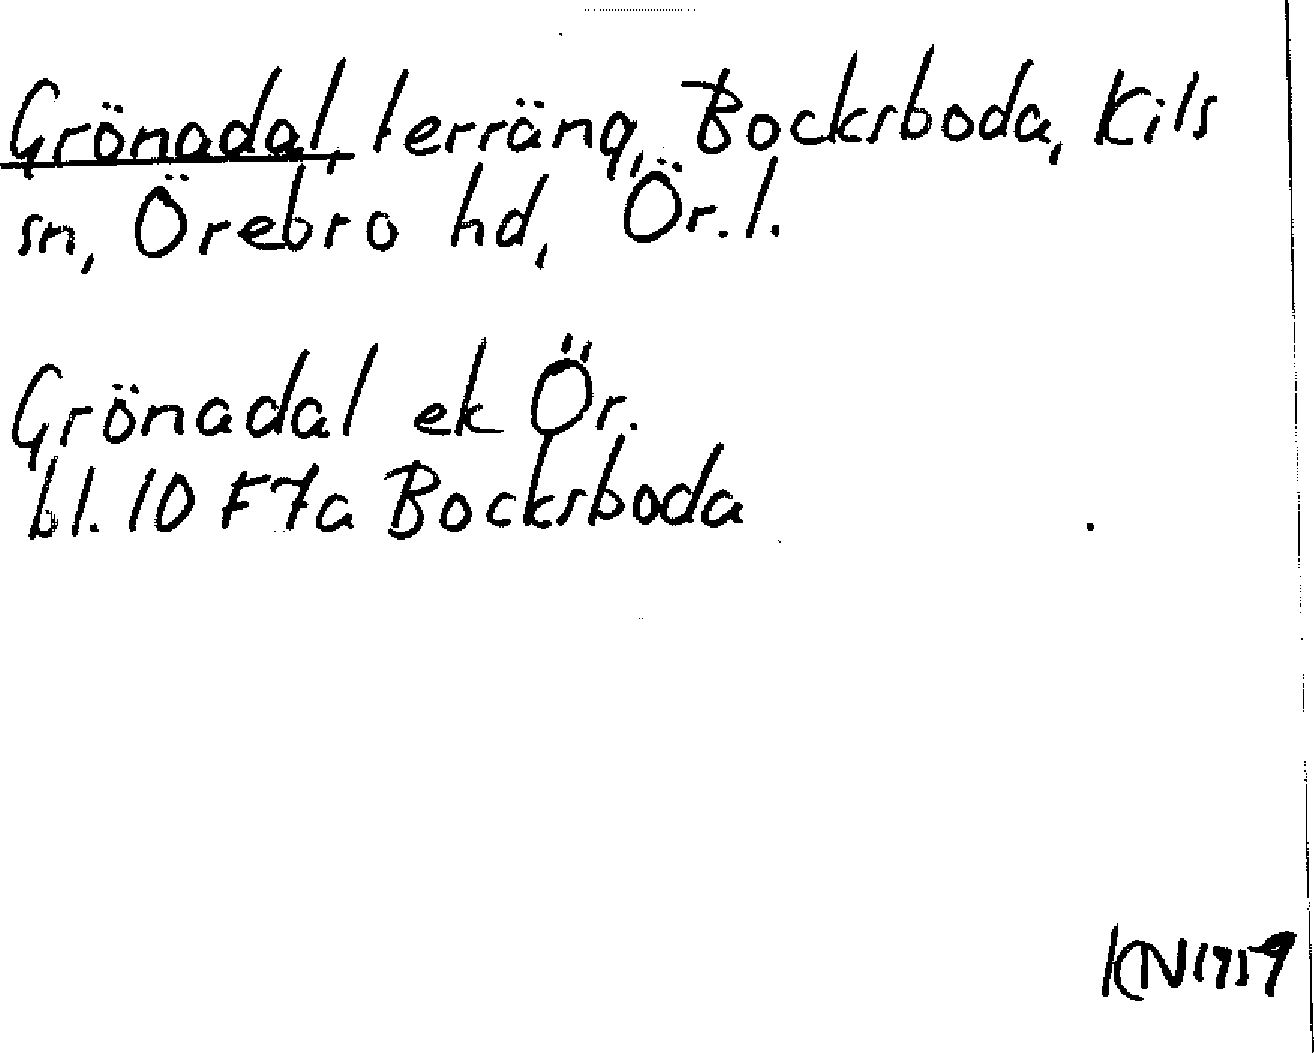 Grönadal, terräng, Bocksboda, Kils
sn, Örebro hd, Ör. l.
Grönadal ek Ör.
bl. 10 F 7a Bocksboda
KN 1959